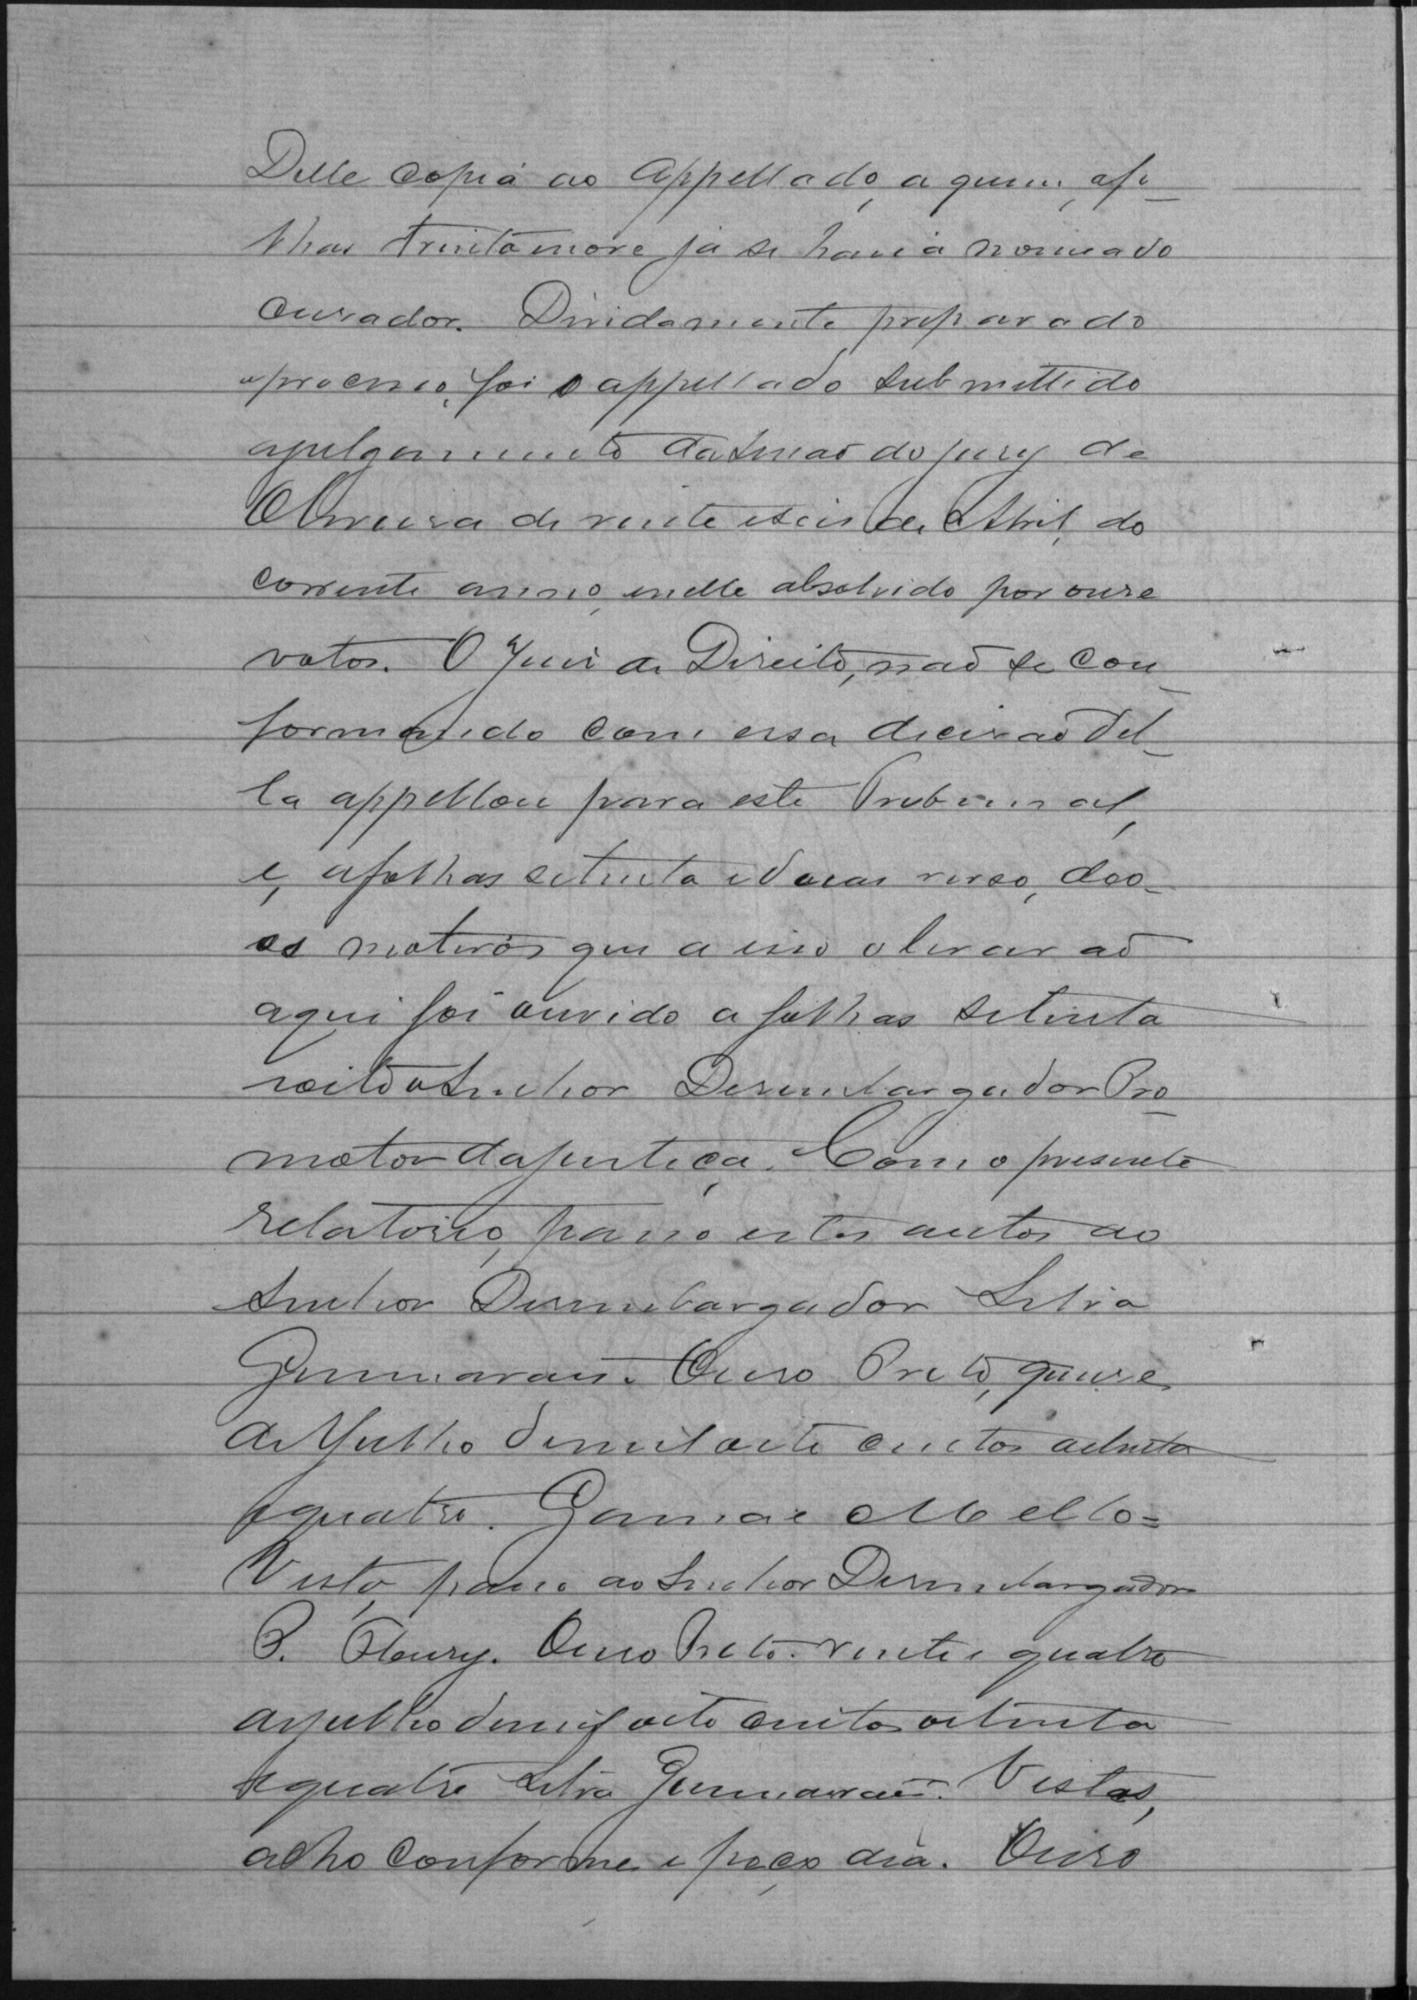 Delle copia ao appellado, a quem, afo
lhas trinta e nove já se havia nomeado
curador. Dividamente preparado
o processo, foi o appellado submettido
a julgamento da sessão do jury de
Oliveira de vinte e seis de Abril, do
corrente anno, e nelle absolvido por onze
votos. O Juiz de Direito, não se con
formando com essa decisão del-
la appellou para este Tribunal,
e, a folhas setenta e duas verso, deo-
os motivos que a isso o levarão
aqui foi ouvido a folhas setenta
e oito o Senhor Desembargador Pro
motor da justiça. Com o presente
relatorio, passo estes autos ao
Senhor Desembargador Silva
Guimarães. Ouro Preto, quinze
de Julho de mil oito centos oitenta
e quatro. Gama e Mello=
Visto, passo ao Senhor Desembargador
P. Fleury. Ouro Preto. vinte e quatro
de julho de mil oito centos oitenta
e quatro Silva Guimarães. Vistos,
acho conforme e peço dia. Ouro